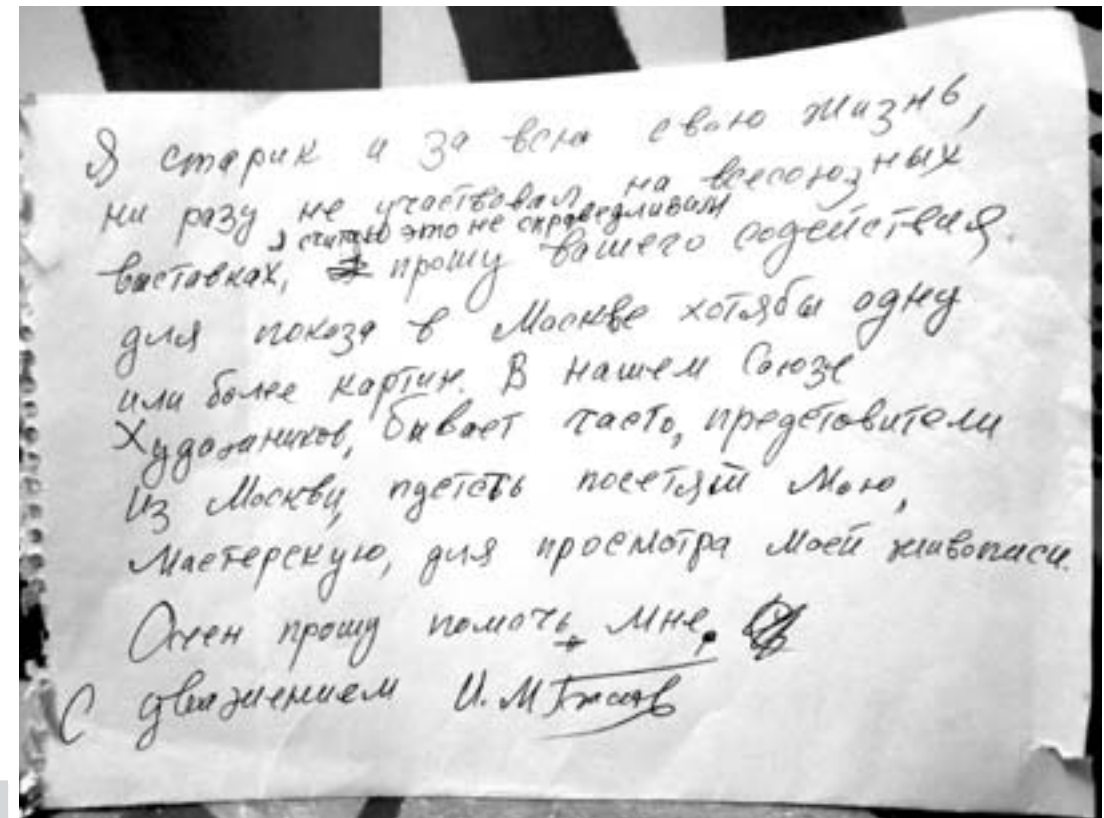 Я старик и за всю свою жизнь,
ни разу не участвовал на всесоюзных
я считаю это не справедливым
выставках, прошу вашего содействия.
для показа в Москве хотябы одну
или более картин. В нашем Союзе
Художников, бывает часто, представители
из Москвы, пусть посетят мою,
мастерскую, для просмотра моей живописи.
Очен прошу помочь мне.
С уважением И. М